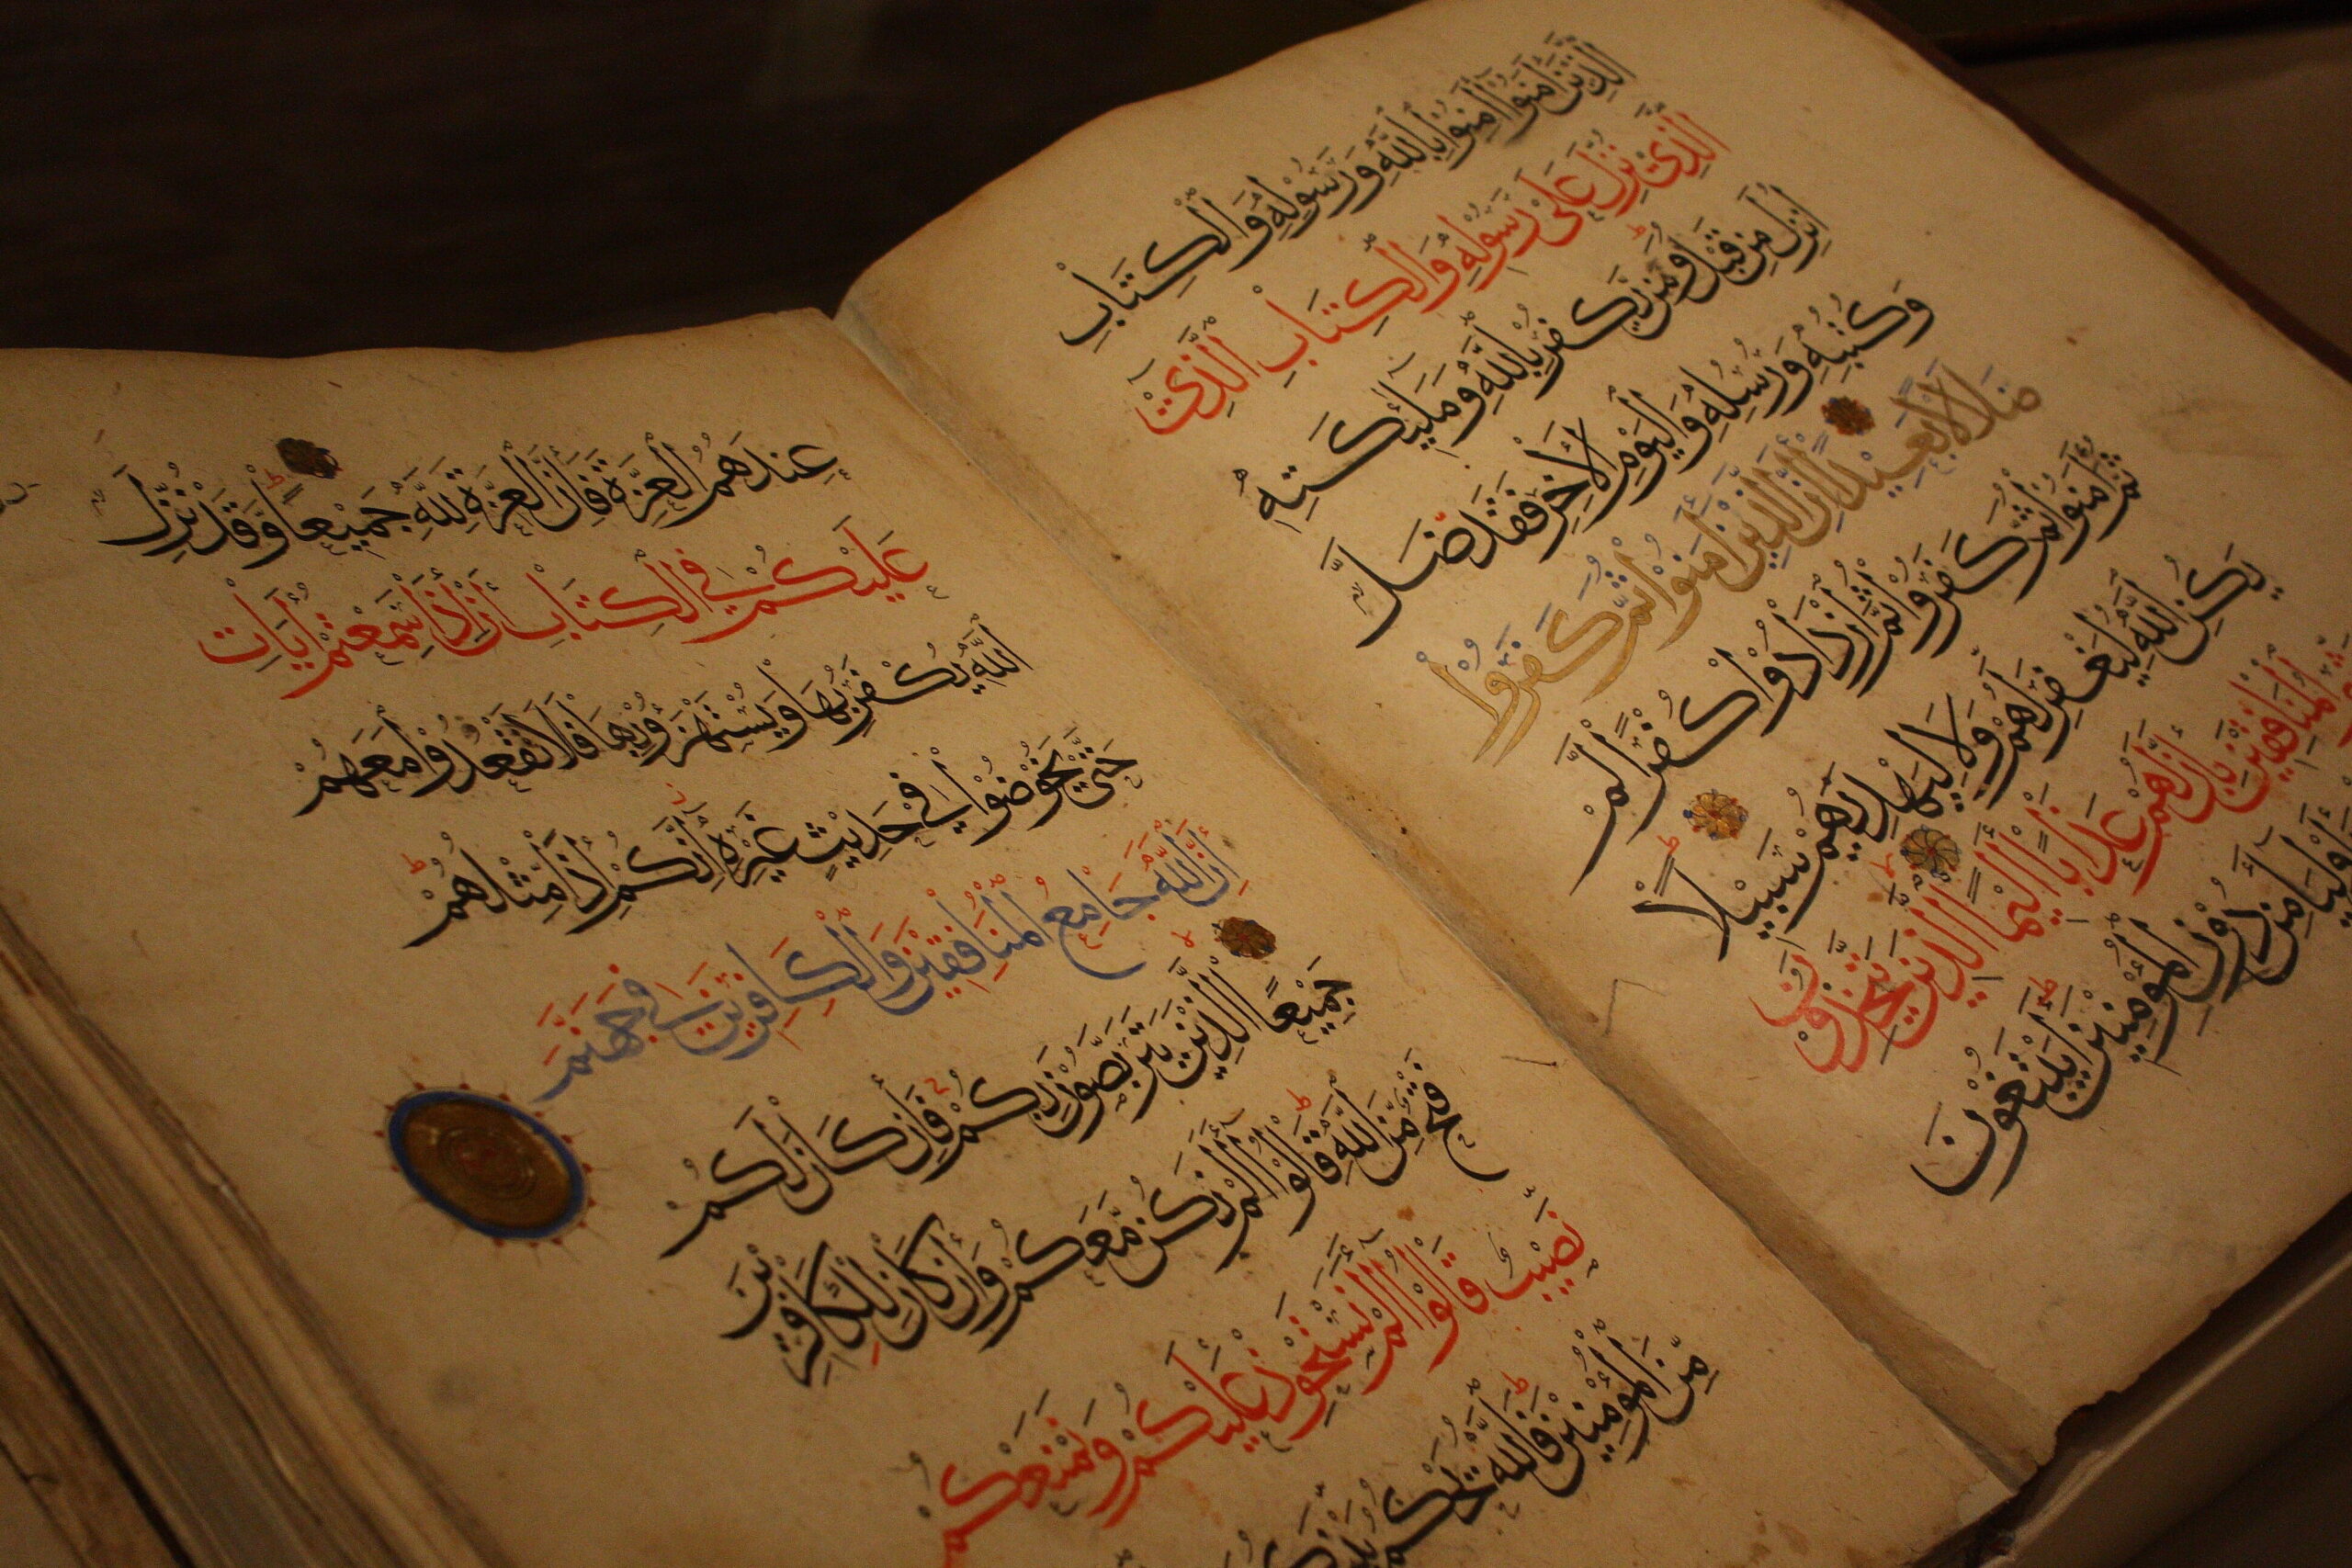 الَّذِينَ آمَنُوا آمِنُوا بِاللَّهِ وَرَسُولِهِ وَالْكِتَابِ
الَّذِي نَزَّلَ عَلَى رَسُولِهِ وَالْكِتَابِ الَّذِي
أُنْزِلَ مِنْ قَبْلُ وَمَنْ يَكْفُرْ بِاللَّهِ وَمَلَئِكَتِهِ
وَكُتُبِهِ وَرُسُلِهِ وَالْيَوْمِ الْآخِرِ فَقَدْ ضَلَّ
ضَلَالًا بَعِيدًا إِنَّ الَّذِينَ آمَنُوا ثُمَّ كَفَرُوا
ثُمَّ آمَنُوا ثُمَّ كَفَرُوا ثُمَّ ازْدَادُوا كُفْرًا لَمْ
يَكُنِ اللَّهُ لِيَغْفِرَ لَهُمْ وَلَا لِيَهْدِيَهُمْ سَبِيلًا
الْمُنَافِقِينَ بِأَنَّ لَهُمْ عَذَابًا أَلِيمًا الَّذِينَ يَتَّخِذُونَ
أَوْلِيَاءَ مِنْ دُونِ الْمُؤْمِنِينَ أَيَبْتَغُونَ
عِنْدَهُمُ الْعِزَّةَ فَإِنَّ الْعِزَّةَ لِلَّهِ جَمِيعًا وَقَدْ نَزَّلَ
عَلَيْكُمْ فِي الْكِتَابِ أَنْ إِذَا سَمِعْتُمْ آيَاتِ
اللَّهِ يُكْفَرُ بِهَا وَيُسْتَهْزَؤُ بِهَا فَلَا تَقْعُدُوا مَعَهُمْ
حَتَّى يَخُوضُوا فِي حَدِيثٍ غَيْرِهِ إِنَّكُمْ إِذًا مِثْلُهُمْ
إِنَّ اللَّهَ جَامِعُ الْمُنَافِقِينَ وَالْكَافِرِينَ فِي جَهَنَّمَ
جَمِيعًا الَّذِينَ يَتَرَبَّصُونَ بِكُمْ فَإِنْ كَانَ لَكُمْ
فَتْحٌ مِنَ اللَّهِ قَالُوا أَلَمْ نَكُنْ مَعَكُمْ وَإِنْ كَانَ لِلْكَافِرِينَ
نَصِيبٌ قَالُوا أَلَمْ نَسْتَحْوِذْ عَلَيْكُمْ وَنَمْنَعْكُمْ
مِنَ الْمُؤْمِنِينَ فَاللَّهُ يَحْكُمُ